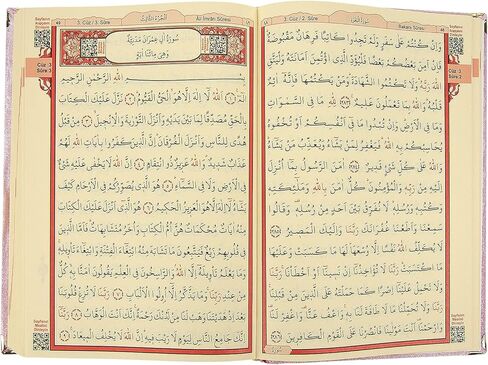 48
3. Cüz / 2. Sûre
سُورَةُ الْبَقَرَةِ
Bakara Sûresi
Cüz :3
Sûre:2
وَاِنْ كُنْتُمْ عَلٰى سَفَرٍ وَلَمْ تَجِدُوا كَاتِبًا فَرِهَانٌ مَقْبُوضَةٌ
فَاِنْ اَمِنَ بَعْضُكُمْ بَعْضًا فَلْيُؤَدِّ الَّذِي اؤْتُمِنَ اَمَانَتَهُ وَلْيَتَّقِ
اللّٰهَ رَبَّهُ وَلَا تَكْتُمُوا الشَّهَادَةَ وَمَنْ يَكْتُمْهَا فَاِنَّهُ اٰثِمٌ
قَلْبُهُ وَاللّٰهُ بِمَا تَعْمَلُونَ عَلِيمٌ ﴿٢٨٣﴾ لِلّٰهِ مَا فِي السَّمٰوَاتِ
وَمَا فِي الْاَرْضِ وَاِنْ تُبْدُوا مَا فِي اَنْفُسِكُمْ اَوْ تُخْفُوهُ
يُحَاسِبْكُمْ بِهِ اللّٰهُ فَيَغْفِرُ لِمَنْ يَشَاءُ وَيُعَذِّبُ مَنْ يَشَاءُ
وَاللّٰهُ عَلٰى كُلِّ شَيْءٍ قَدِيرٌ ﴿٢٨٤﴾ اٰمَنَ الرَّسُولُ بِمَا اُنْزِلَ
اِلَيْهِ مِنْ رَبِّهِ وَالْمُؤْمِنُونَ كُلٌّ اٰمَنَ بِاللّٰهِ وَمَلٰئِكَتِهِ
وَكُتُبِهِ وَرُسُلِهِ لَا نُفَرِّقُ بَيْنَ اَحَدٍ مِنْ رُسُلِهِ وَقَالُوا
سَمِعْنَا وَاَطَعْنَا غُفْرَانَكَ رَبَّنَا وَاِلَيْكَ الْمَصِيرُ ﴿٢٨٥﴾
لَا يُكَلِّفُ اللّٰهُ نَفْسًا اِلَّا وُسْعَهَا لَهَا مَا كَسَبَتْ وَعَلَيْهَا
مَا اكْتَسَبَتْ رَبَّنَا لَا تُؤَاخِذْنَا اِنْ نَسِينَا اَوْ اَخْطَأْنَا رَبَّنَا
وَلَا تَحْمِلْ عَلَيْنَا اِصْرًا كَمَا حَمَلْتَهُ عَلَى الَّذِينَ مِنْ قَبْلِنَا
رَبَّنَا وَلَا تُحَمِّلْنَا مَا لَا طَاقَةَ لَنَا بِهِ وَاعْفُ عَنَّا وَاغْفِرْ لَنَا
وَارْحَمْنَا اَنْتَ مَوْلٰينَا فَانْصُرْنَا عَلَى الْقَوْمِ الْكَافِرِينَ ﴿٢٨٦﴾
49
3. Cüz / 3. Sûre
اَلْجُزْءُ الثَّالِثُ
Âl-i İmrân Sûresi
Cüz :3
Sûre:3
سُورَةُ اٰلِ عِمْرٰنَ مَدَنِيَّةٌ
وَهِيَ مِائَتَا اٰيَةٍ
بِسْمِ اللّٰهِ الرَّحْمٰنِ الرَّحِيمِ
الٓمٓ ﴿١﴾ اَللّٰهُ لَا اِلٰهَ اِلَّا هُوَ الْحَيُّ الْقَيُّومُ ﴿٢﴾ نَزَّلَ عَلَيْكَ الْكِتَابَ
بِالْحَقِّ مُصَدِّقًا لِمَا بَيْنَ يَدَيْهِ وَاَنْزَلَ التَّوْرٰيةَ وَالْاِنْجِيلَ ﴿٣﴾ مِنْ قَبْلُ
هُدًى لِلنَّاسِ وَاَنْزَلَ الْفُرْقَانَ اِنَّ الَّذِينَ كَفَرُوا بِاٰيَاتِ اللّٰهِ لَهُمْ
عَذَابٌ شَدِيدٌ وَاللّٰهُ عَزِيزٌ ذُو انْتِقَامٍ ﴿٤﴾ اِنَّ اللّٰهَ لَا يَخْفٰى عَلَيْهِ شَيْءٌ
فِي الْاَرْضِ وَلَا فِي السَّمَاءِ ﴿٥﴾ هُوَ الَّذِي يُصَوِّرُكُمْ فِي الْاَرْحَامِ كَيْفَ
يَشَاءُ لَا اِلٰهَ اِلَّا هُوَ الْعَزِيزُ الْحَكِيمُ ﴿٦﴾ هُوَ الَّذِي اَنْزَلَ عَلَيْكَ الْكِتَابَ
مِنْهُ اٰيَاتٌ مُحْكَمَاتٌ هُنَّ اُمُّ الْكِتَابِ وَاُخَرُ مُتَشَابِهَاتٌ فَاَمَّا الَّذِينَ
فِي قُلُوبِهِمْ زَيْغٌ فَيَتَّبِعُونَ مَا تَشَابَهَ مِنْهُ ابْتِغَاءَ الْفِتْنَةِ وَابْتِغَاءَ تَأْوِيلِهِ
وَمَا يَعْلَمُ تَأْوِيلَهُ اِلَّا اللّٰهُ وَالرَّاسِخُونَ فِي الْعِلْمِ يَقُولُونَ اٰمَنَّا بِهِ كُلٌّ
مِنْ عِنْدِ رَبِّنَا وَمَا يَذَّكَّرُ اِلَّا اُولُوا الْاَلْبَابِ ﴿٧﴾ رَبَّنَا لَا تُزِغْ قُلُوبَنَا
بَعْدَ اِذْ هَدَيْتَنَا وَهَبْ لَنَا مِنْ لَدُنْكَ رَحْمَةً اِنَّكَ اَنْتَ الْوَهَّابُ ﴿٨﴾ رَبَّنَا
اِنَّكَ جَامِعُ النَّاسِ لِيَوْمٍ لَا رَيْبَ فِيهِ اِنَّ اللّٰهَ لَا يُخْلِفُ الْمِيعَادَ ﴿٩﴾